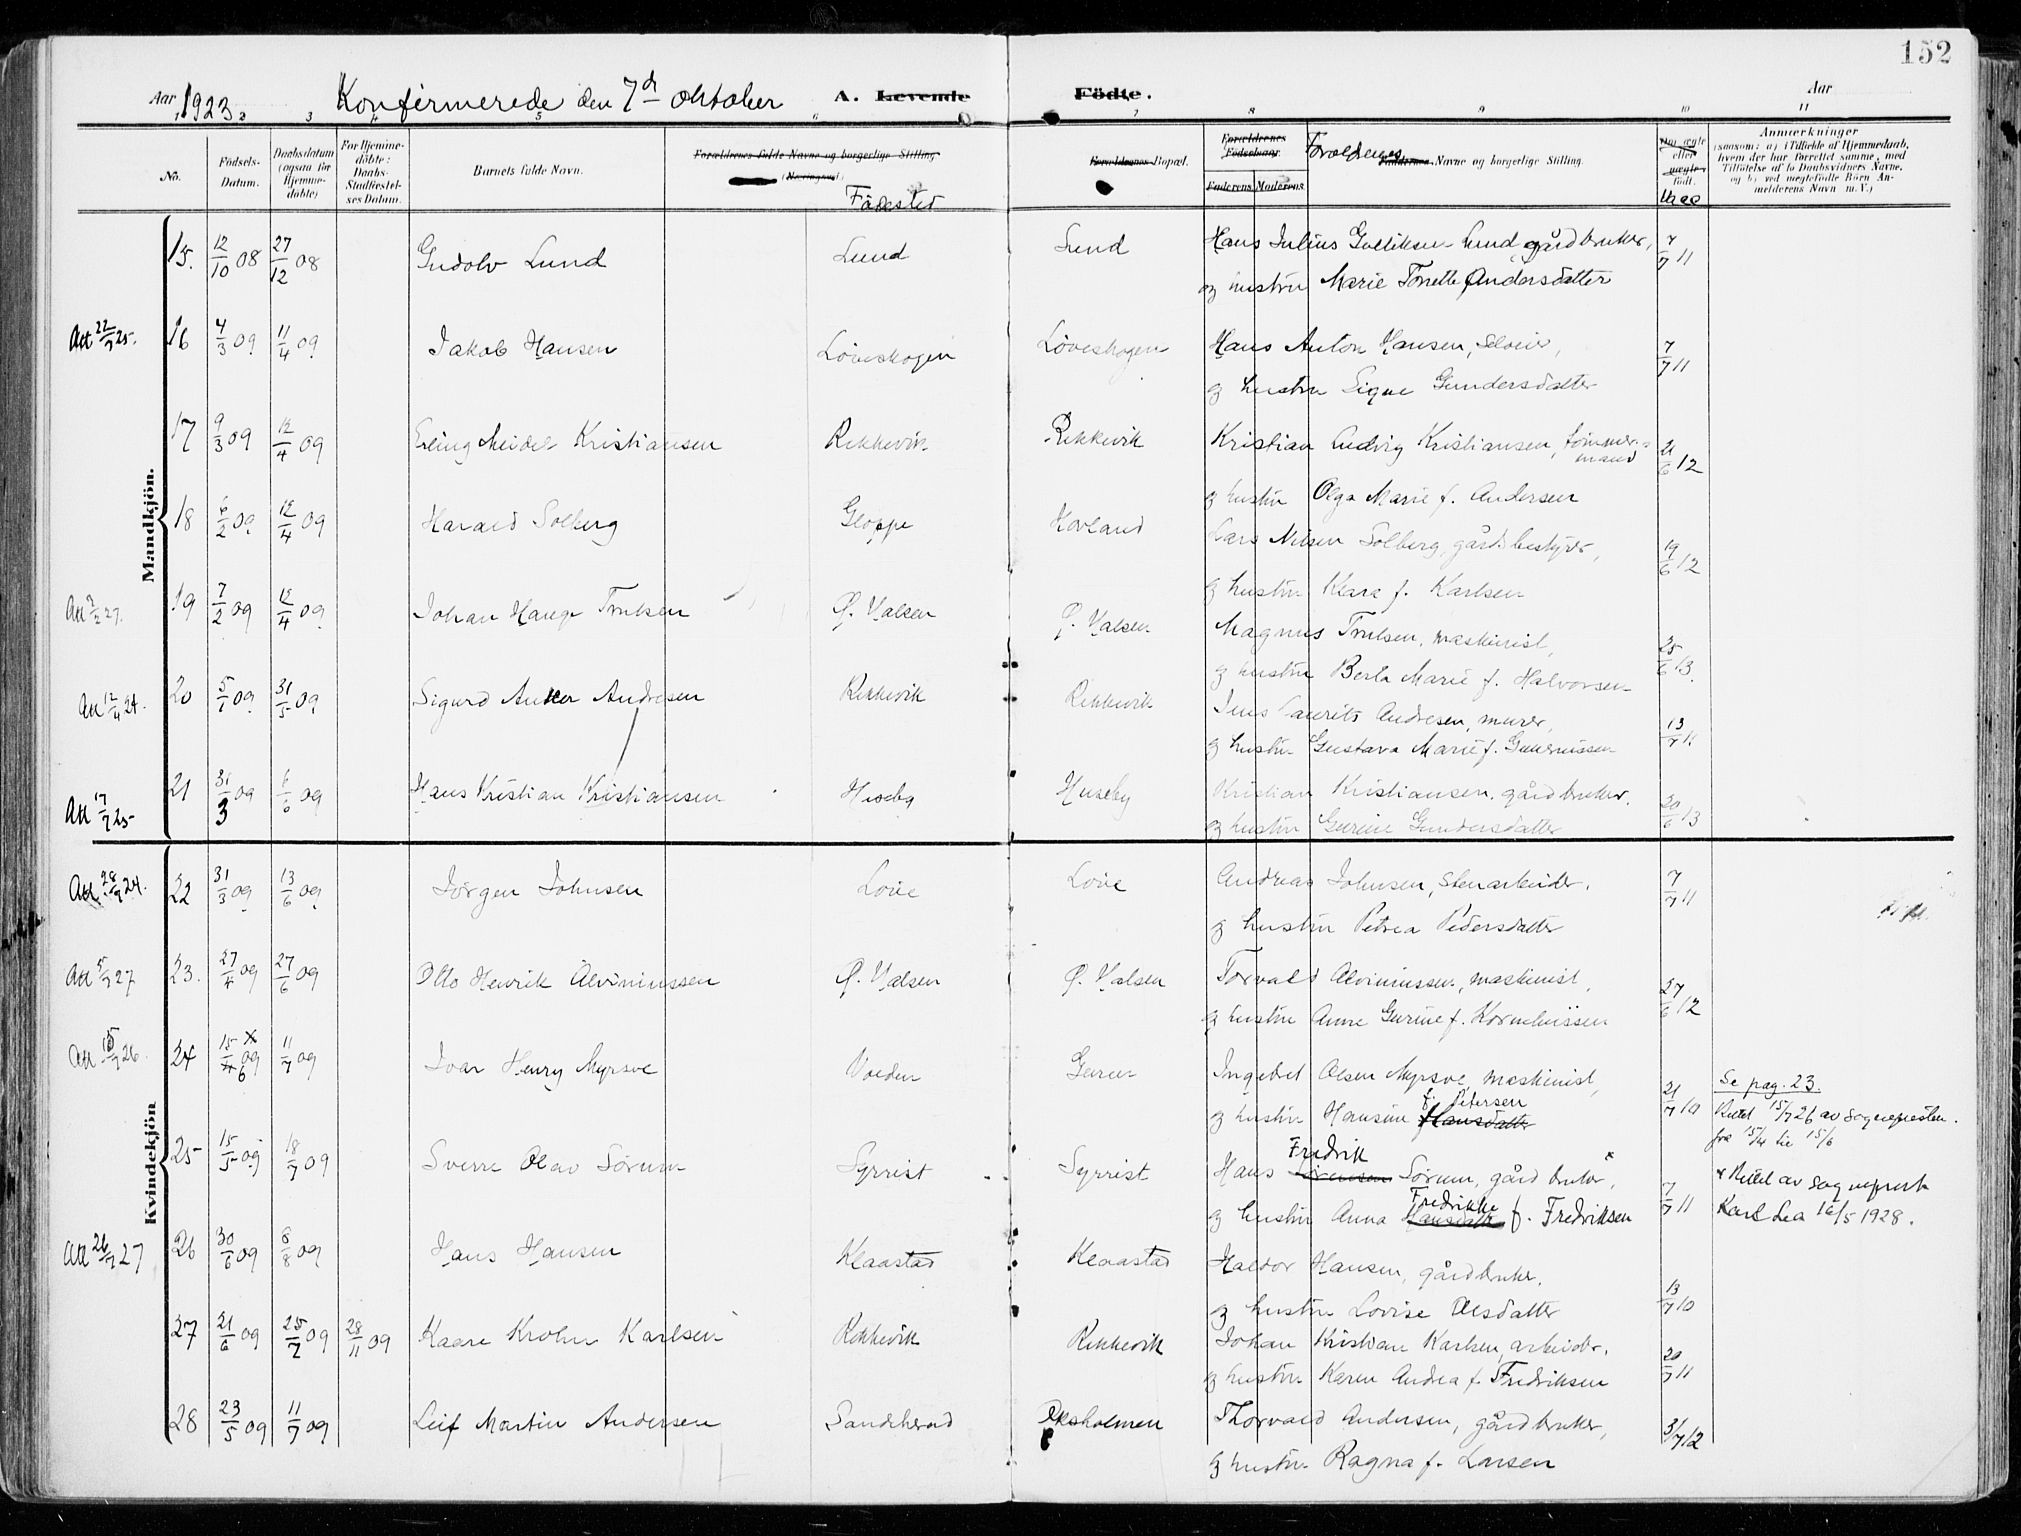 152
Aar 1923 Konfirmerede den 7d oktober A. Levende Födte. Aar
1 2 3 4 5 6 7 8 9 10 11
No. Födsels-Datum. Daabsdatum (ogsaa for Hjemmedöbte) For Hjemmedöbte: Daabs-Stadfæstelses Datum. Barnets fulde Navn. Forældrenes fulde Navne og borgerlige Stilling (Næringsvei) Födested Forældrenes Bopæl. Forældrenes Födselsaar. Faderens Moderens Forældrenes Navne og borgerlige Stilling. eller födt. Vacc Anmærkninger (saasom: a) i Tilfælde af Hjemmedaab, hvem der har forrettet samme, med Tilföielse af to Daabsvidners Navne. og b) ved uægtefödte Börn Anmelderens Navn m. V.)
Mandkjön.
15. 12/10 08 27/12 08 Gudolv Lund Lund Lund Hans Julius Lund, gårdbruker, 7/7 11
og hustru Marie Tonette Andersdatter
Att 22/7 25. 16 4/3 09 11/4 09 Jakob Hansen Löveskogen Löveskogen Hans Anton Hansen, Selveier, 7/7 11
og hustru Signe Gundersdatter
17 9/3 09 12/4 09 Erling Meidel Kristiansen Rekkevik Rekkevik Kristian Ludvig Kristiansen, tømmermand 21/6 12
og hustru Olga Marie f. Andersen
18 6/2 09 12/4 09 Harald Solberg Gloppe Hovland Lars Nilsen Solberg, gårdsbestyrer, 19/6 12
og hustru Klara f. Karlsen
Att 2/2 27. 19 7/2 09 12/4 09 Johan Hauge Trulsen Ø. Halsen Ø. Halsen Magnus Trulsen, maskinist, 25/6 13.
og hustru Berla Marie f. Halvorsen
Att 12/4 24. 20 5/1 09 31/5 09 Sigurd Anker Andresen Rekkevik Rekkevik Jens Laurits Andresen, murer, 13/7 11
og hustru Gustava Marie f. Gunerussen
Att 17/7 25 21 31/3 09 6/6 09 Hans Kristian Kristiansen Huseby Huseby Kristian Kristiansen, gårdbruker, 20/6 13
og hustru Gurine Gundersdatter
Kvindekjön
Att 28/9 24. 22 31/3 09 13/6 09 Jörgen Johnsen Love Love Andreas Johnsen, Stenarbeider, 7/7 11
og hustru Petrea Pedersdatter
Att 5/2 27 23. 27/4 09 27/6 09 Otto Henrik Alviniussen Ø. Halsen Ø. Halsen Torvald Alviniussen, maskinist, 27/6 12
og hustru Anne Gurine f. Korneliussen
Att 15/7 26. 24 15/4 6 09 x 11/7 09 Ivar Henry Myrsve Volden Guren Ingebret Olsen Myrsve, maskinist, 21/7 10 Se pag. 23.
og hustru Hansine Hansdatter f. Petersen Rettet 15/7 26 av sognepresten.
fra 15/4 til 15/6
25 15/5 09 18/7 09 Sverre Olav Sørum Syrrist Syrrist Hans Sörensen Fredrik Sørum, gårdbruker x, 7/7 11 x Rettet av sogneprest
og hustru Anna Hansdatter Fredrikke f. Fredriksen Karl Lea 16/5 1928.
Att 26/7 27 26 30/6 09 8/8 09 Hans Hansen Klaastad Klaastad Haldor Hansen, gårdbruker, 13/7 10
og hustru Lovise Olsdatter
27 21/6 09 25/7 09 28/11 09 Kaare Krohn Karlsen Rekkevik Rekkevik Johan Kristian Karlsen, arbeider, 20/7 11
og hustru Karen Andrea f. Fredriksen
28 23/5 09 11/7 09 Leif Martin Andersen Sandeherad Oksholmen Thorvald Andersen, gårdbruker, 3/7 12
og hustru Ragna f. Larsen